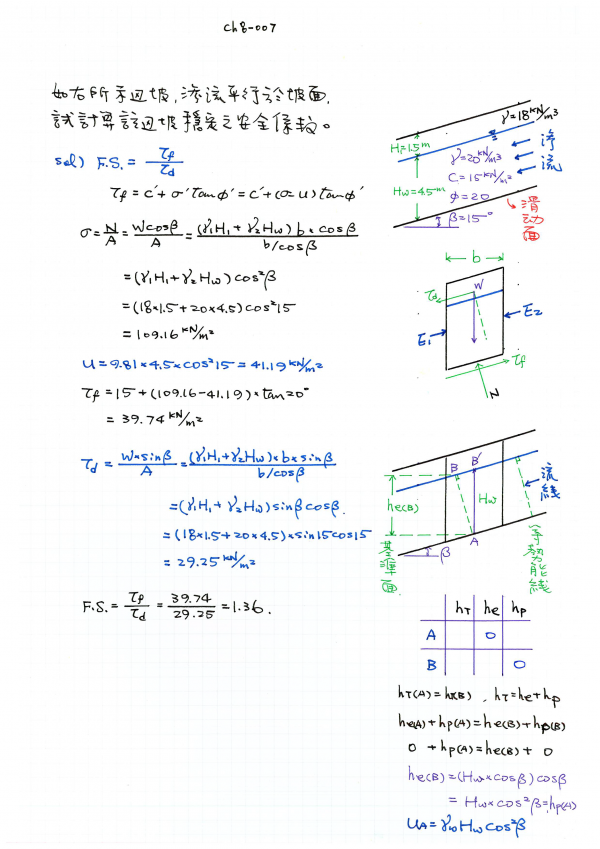 ch8-007
如右所示边坡,渗流平行於坡面,
試計算該边坡穩定之安全係数。
sol) F.S. = τf/τd
τf = c' + σ' tanφ' = c' + (σ-u) tanφ'
σ = N/A = Wcosβ/A = (γ1H1 + γ2Hw) b × cosβ / b/cosβ
= (γ1H1 + γ2Hw) cos²β
= (18×1.5 + 20×4.5) cos²15
= 109.16 kN/m²
u = 9.81×4.5×cos²15 = 41.19 kN/m²
τf = 15 + (109.16-41.19)×tan20°
= 39.74 kN/m²
τd = W×sinβ/A = (γ1H1+γ2Hw)×b×sinβ / b/cosβ
= (γ1H1 + γ2Hw) sinβcosβ
= (18×1.5 + 20×4.5)×sin15cos15
= 29.25 kN/m²
F.S. = τf/τd = 39.74/29.25 = 1.36.
γ=18 kN/m³
H1=1.5m
γ=20 kN/m³
渗流
C=15 kN/m²
Hw=4.5m
φ=20
β=15°
滑动面
b
W
τd
E1
E2
τf
N
B B'
流線
he(B)
Hw
A
β
基準面
等势能線
hT he hp
A 0
B 0
hT(A)=hT(B) , hT=he+hp
he(A)+hp(A)=he(B)+hp(B)
0 +hp(A)=he(B)+ 0
he(B)=(Hw×cosβ)cosβ
= Hw×cos²β=hp(A)
UA=γwHwcos²β